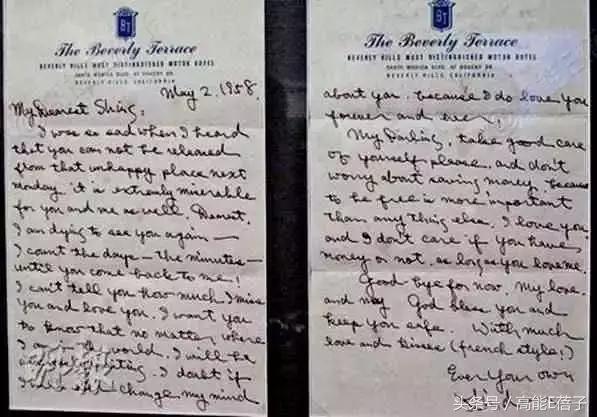 BT
The Beverly Terrace
BEVERLY HILLS MOST DISTINGUISHED MOTOR HOTEL
SANTA MONICA BLVD. AT DOHENY DR.
BEVERLY HILLS, CALIFORNIA
May 2, 1958.
My Dearest Shing:
I was so sad when I heard
that you can not be released
from that unhappy place next
Monday. it is extremly miserable
for you and me as well. Dearest,
I am dying to see you again—
I count the days — the minutes —
until you come back to me!
I can't tell you how much I miss
you and love you. I want you
to know that no matter where
I am in the world, I will be
waiting. I doubt if
I change my mind
BT
The Beverly Terrace
BEVERLY HILLS MOST DISTINGUISHED MOTOR HOTEL
SANTA MONICA BLVD. AT DOHENY DR.
BEVERLY HILLS, CALIFORNIA
about you. because I do love you
forever and ever.
My Darling, take good care
of yourself please, and don't
worry about saving money, because
to be free is more important
than any thing else. I love you
and I don't care if you have
money or not, as long as you love me.
Good bye for now. My love.
and may God bless you and
keep you safe. With much
love and kisses (french style!)
Ever Your own
头条号 / 高能E蓓子